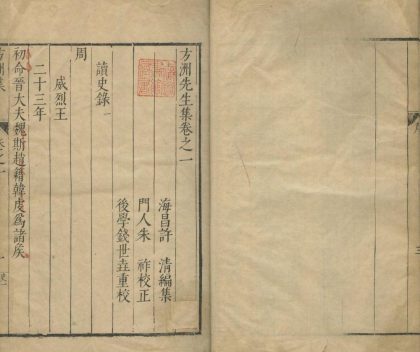 方洲先生集卷之一
海昌許 清編集
門人朱 祚校正
後學錢世垚重校
讀史錄一
周
威烈王
二十三年
初命晉大夫魏斯趙籍韓虔為諸矦
方洲集
卷之一
一